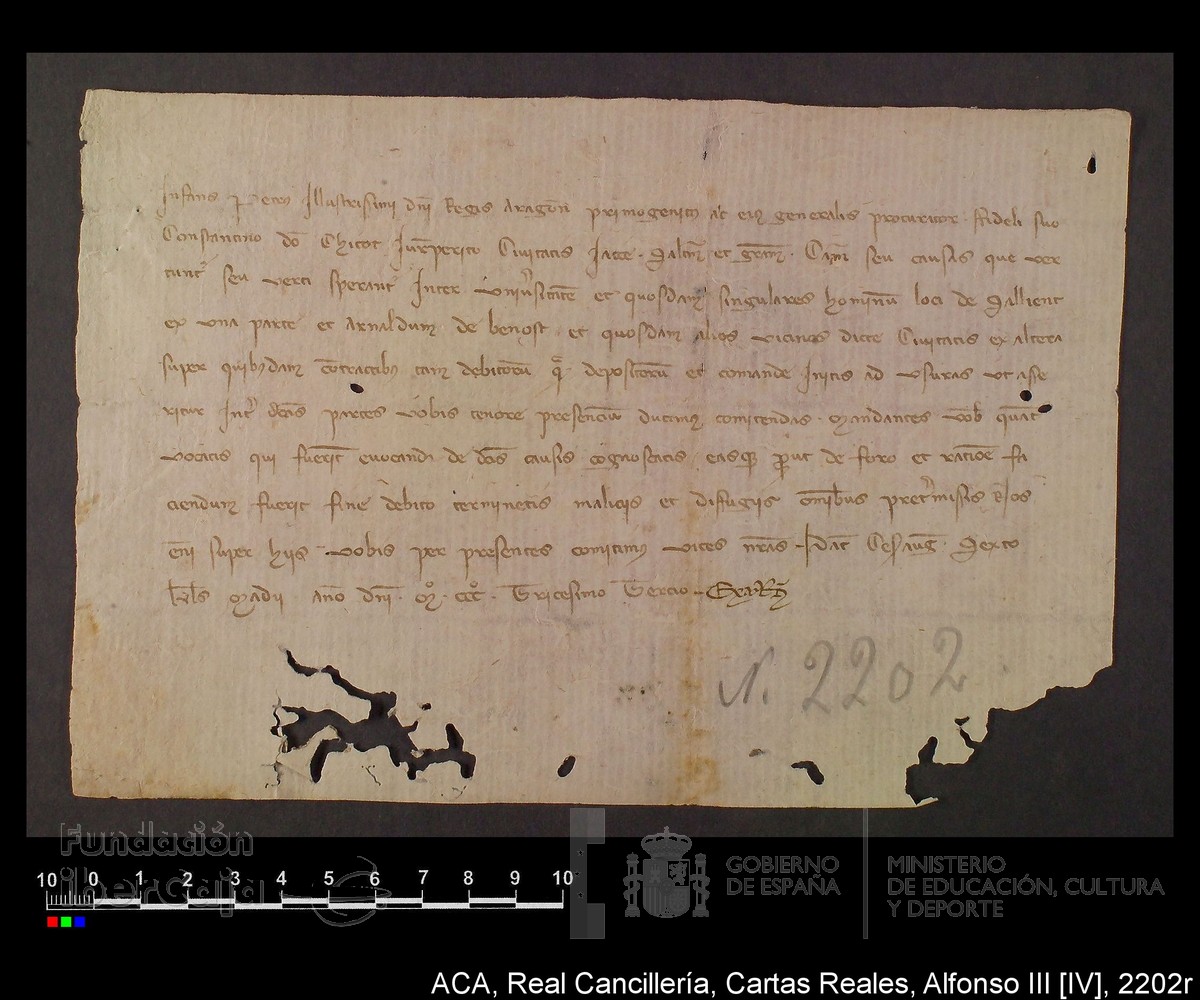 Infans Petrus Illustrissimi dni Regis Aragon primogenitus ac eius generalis procurator ffideli suo
Constantino do Chicot Jurisperito Civitatis Jacce Saltm et gram Cam seu causis que ver
tunt seu verti sperant Inter universitate et quosdam singulares hominum loci de Sallient
ex una parte et Arnaldum de benost et quosdam alios vicinos dicte Civitatis ex altera
super quibusdam contractibus tam debitorum qm depositorum et comande Initis ad usuras ut asse
ritur Int dictas partes vobis tenore presencium ducimus comitendas mandantes vob quat
vocatis qui fuerit evocandi de dcis causis cognoscatis easque prout de foro et ratione fa
ciendum fuerit fine debito terminetis maliciis et diffugiis omibus pretermissis Nos
eni super hiis vobis per presentes comitimus vices nras Dat Cesaraug Sexto
kls Madii ano dni Mº CCCº Tricesimo Tercio
N. 2202
Fundación
iberCaja
10 0 1 2 3 4 5 6 7 8 9 10
GOBIERNO
DE ESPAÑA
MINISTERIO
DE EDUCACIÓN, CULTURA
Y DEPORTE
ACA, Real Cancillería, Cartas Reales, Alfonso III [IV], 2202r